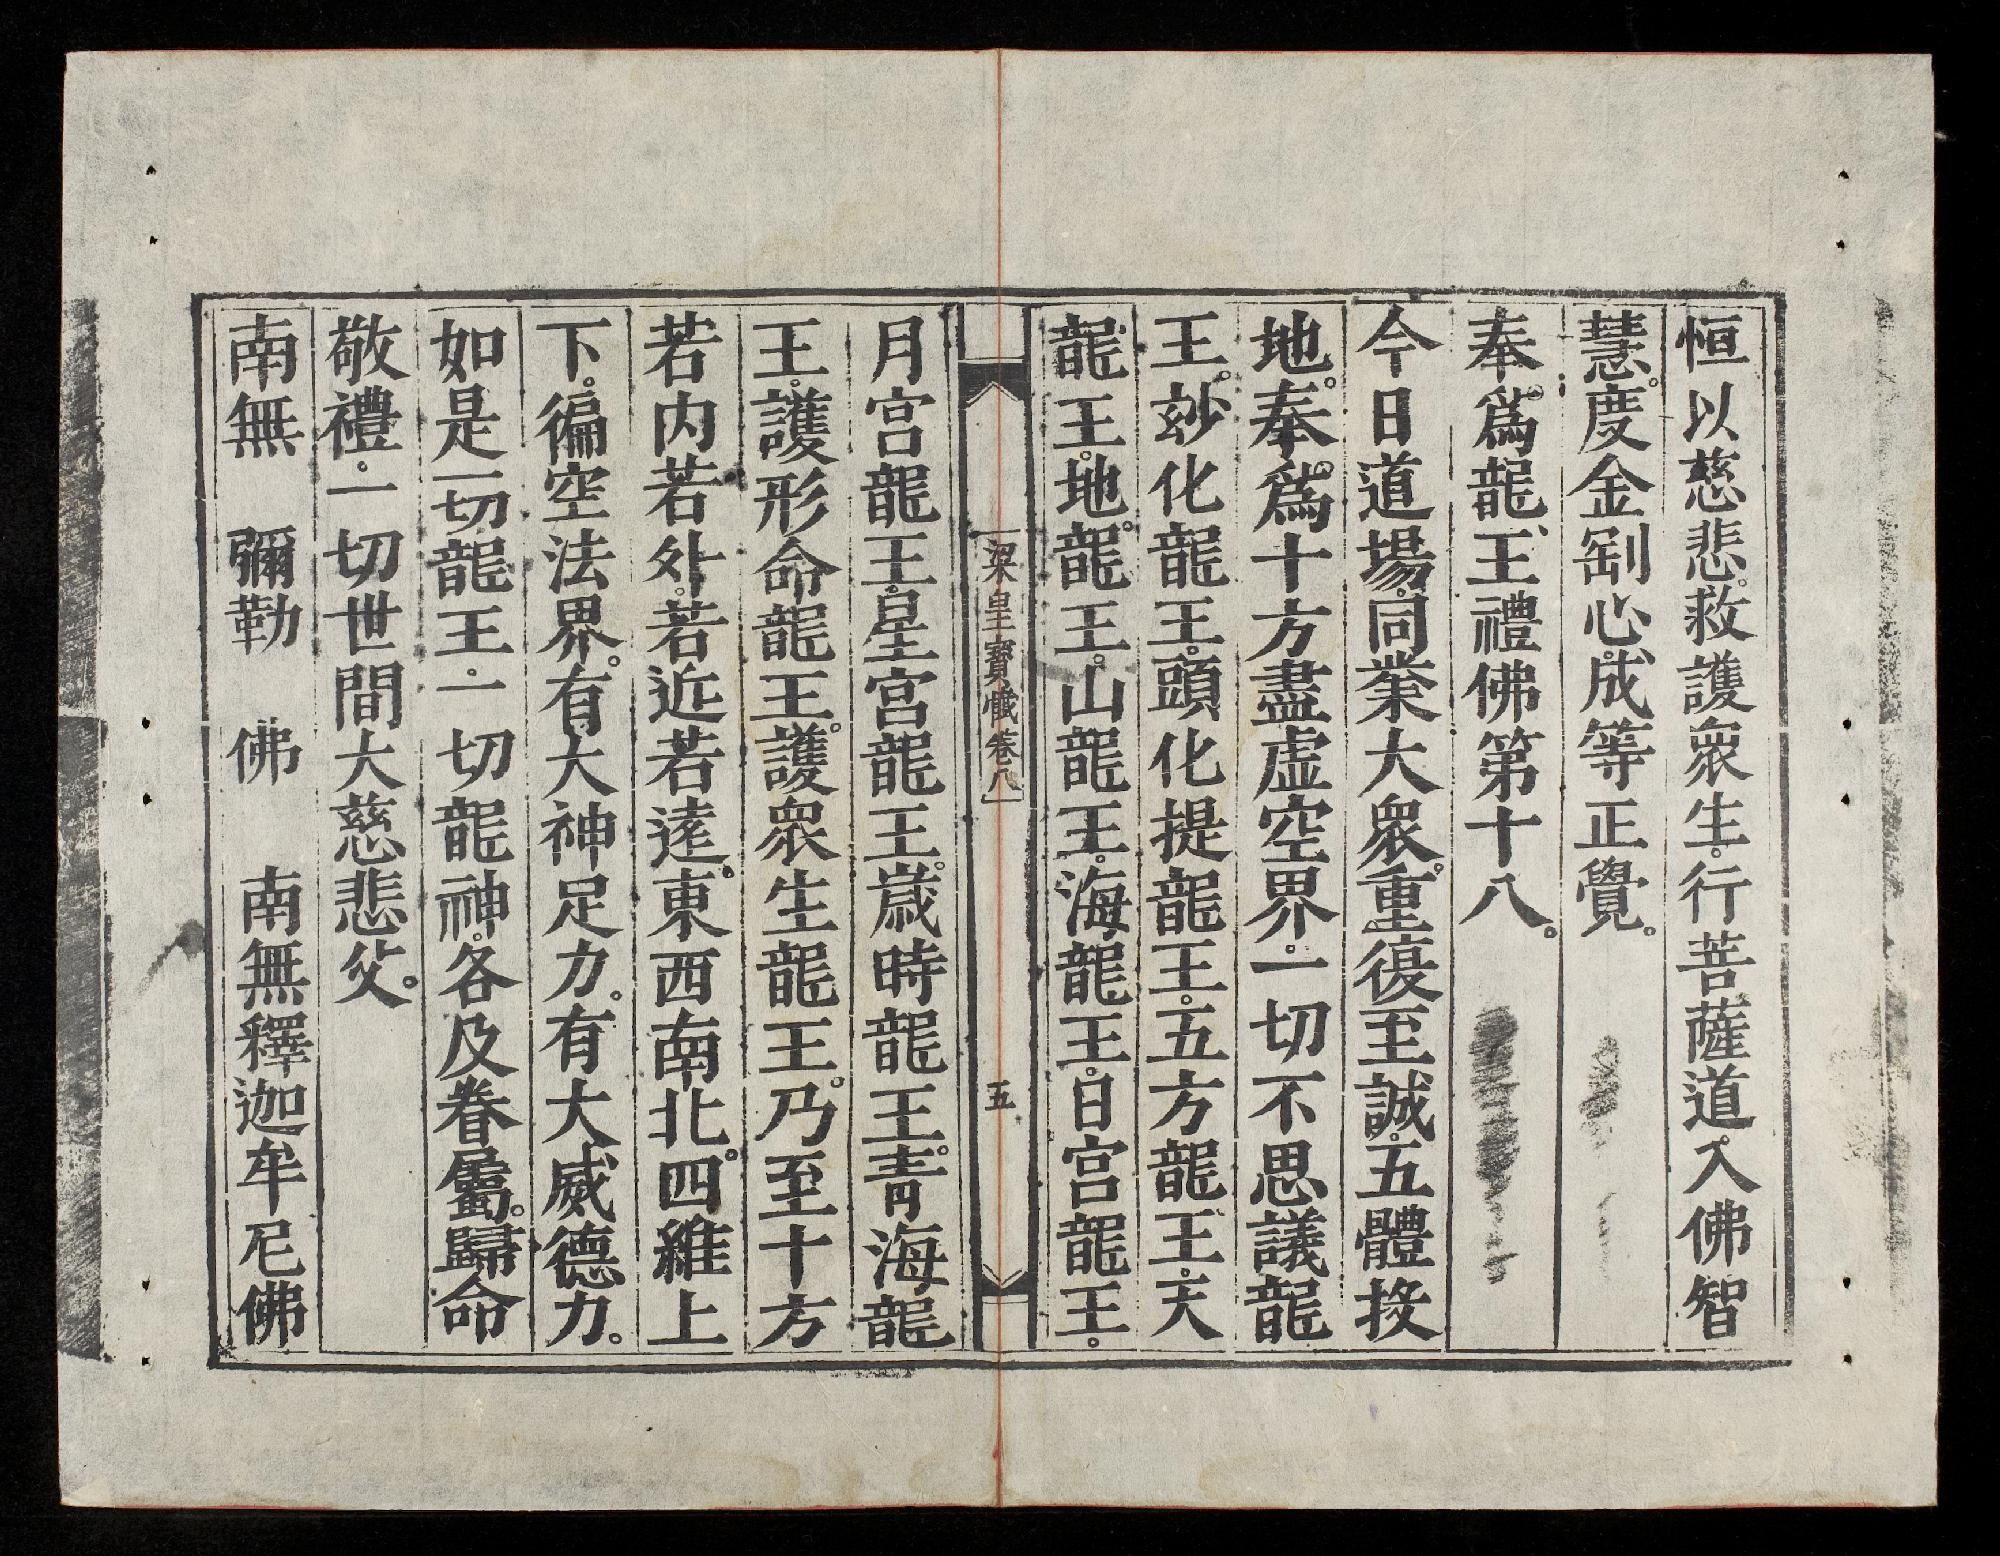 恒以慈悲。救護衆生。行菩薩道。入佛智
慧。度金剛心。成等正覺。
奉。爲龍王禮佛第十八。
今日道場。同業大衆。重復至誠。五體投
地。奉。爲十方盡虛空界。一切不思議龍
王。妙化龍王。頭化提龍王。五方龍王。天
龍王。地龍王。山龍王。海龍王。日宮龍王。
梁皇寶懺卷八
五
月宮龍王。星宮龍王。歲時龍王。青海龍
王。護形命龍王。護衆生龍王。乃至十方
若内若外。若近若遠。東西南北。四維上
下。徧空法界。有大神足力。有大威德力。
如是一切龍王。一切龍神。各及眷屬。歸命
敬禮。一切世間大慈悲父。
南無 彌勒 佛 南無釋迦牟尼佛